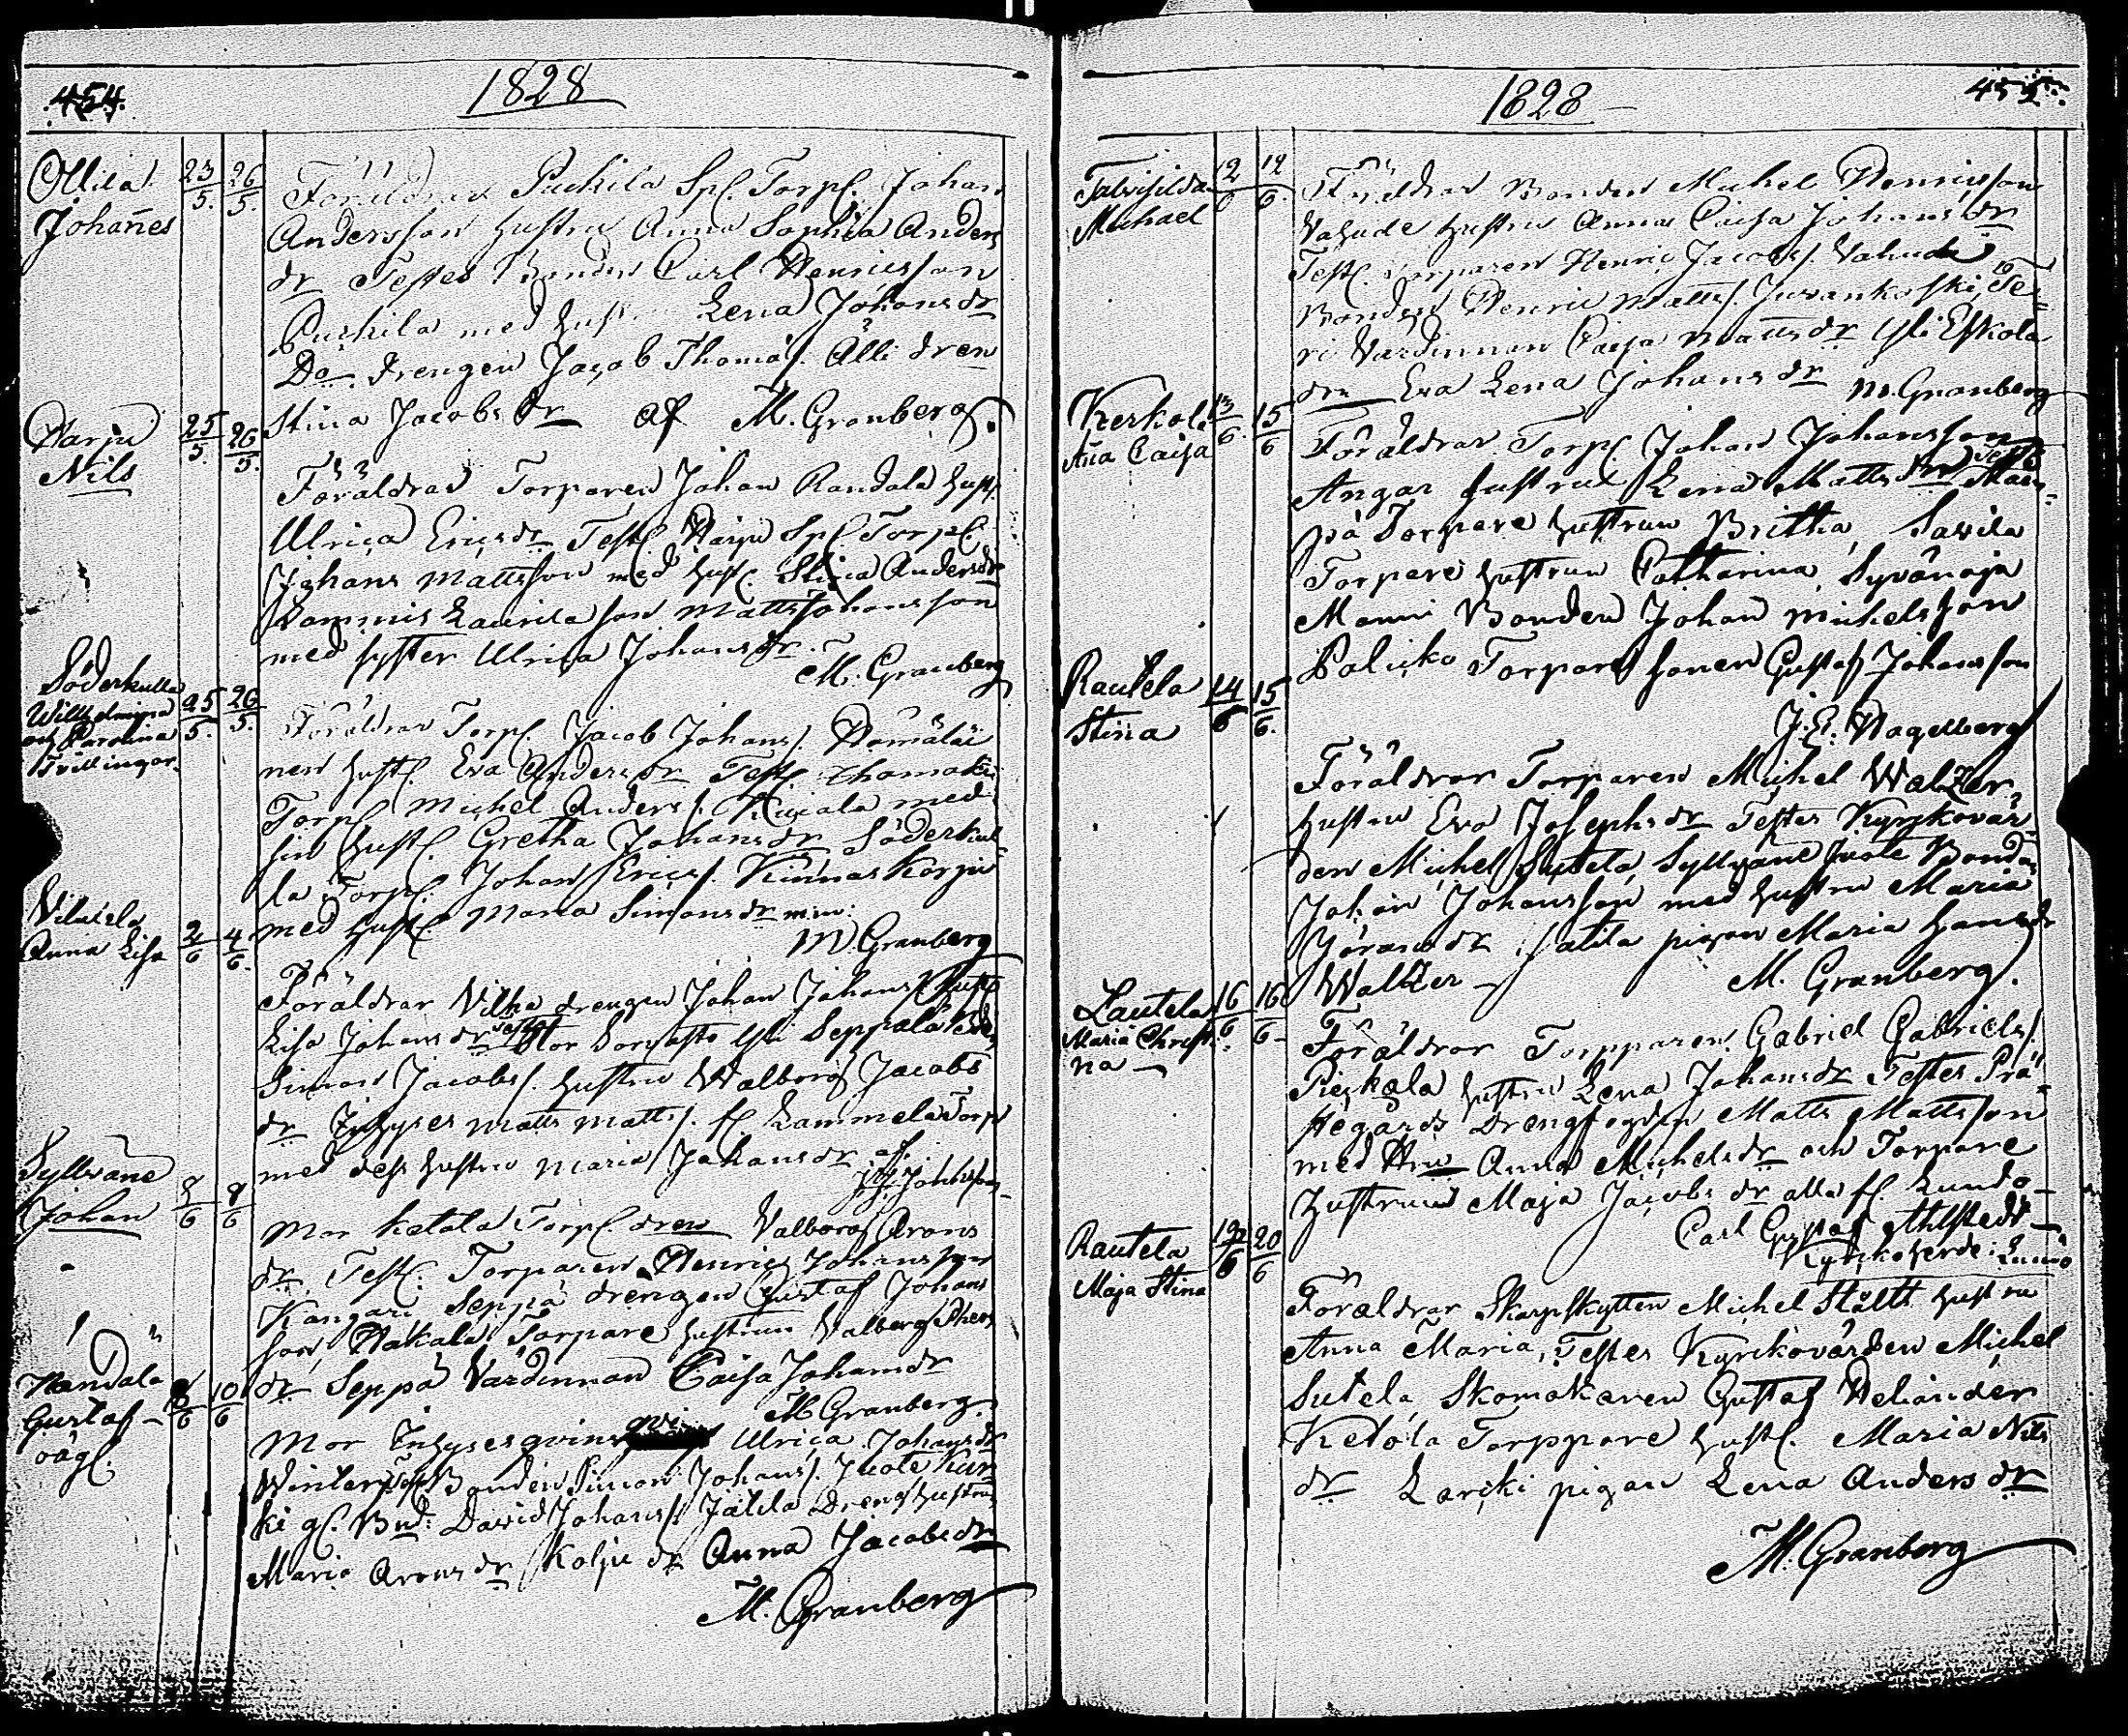 454.
1828
Ollila
Johan̄es
23/5. 26/5.
Föräldrar Puckila Spl. Torp. Johan
Andersson hustru Anna Sophia Anders
dr Testes Bonden Carl Henricsson
Puckila med hust. Lena Johansdr
Do Drengen Jacob Thomas. Älli dren
Stina Jacobs dr af M. Granberg.
Harju
Nils
25/5. 26/5.
Föräldrar Torparen Johan Randala hust.
Ulrica Ericsdr Test. Harju Spl Torp.
Johans Mattsson med hust. Stina Andersdr
Lammis Laurila son Matts Johansson
med syster Ulrica Johansdr.
M. Granberg
Söderkulla
Willhelmina
och Carolina
Tvillingar.
25/5. 26/5.
Föräldrar Torp. Jacob Johans. Hämäläi
nen hust. Eva Andersdr Test.
Torp. Michel Anders. med
sin hust. Gretha Johansdr Söderkul-
la Torp. Johan Erics. Kinnas Korju
med hust. Maria Simonsdr
M. Granberg
Vilutela
Anna Lisa
2/6 4/6.
Föräldrar Vilke drengen Johan Johans. hust.
Lisa Johansdr Testes Seppälä
Simon Jacobs. hustru Walborg Jacobs
dr Inhyses Matts Matts. Lammela Torp
med dess hustru Maria Johansdr af.
Syllvane
Johan
8/6 8/6
Mor Ketola Torp. dren Valborg Arons
dr, Test. Torparen Henric Johansson
Kangari, Seppä drengen Gustaf Johans
son, Hakala Torpare hustrun Valborg
dr Seppä Värdinnan Caisa Johansdr
M Granberg.
Handala
Gustaf
oäg.
8/6 10/6
Mor Inhyses qvin Ulrica Johansdr
Winter Test. Bonden Simon Johans. Juote Kur-
ki g. Bnd. David Johans. Jätila Dreng hustru
Maria Aronsdr Kolju dr Anna Jacobsdr
M. Granberg
1828
455.
Talvisilda
Michael
12/6 14/6.
Föräldrar Bonden Michel Henricsson
Vahude hustru Anna Caisa Johansdr
Test. Torparen Henric Jacobs. Vahude
Bonden Henric Matts. Juvankoski, Te-
ri Värdinnan Caisa Mattsdr Yli Eskola
drn Eva Lena Johansdr M. Granberg
Kerkola
An̄a Caisa
13/6. 15/6
Föräldrar Torp. Johan Johansson
Angar hustru Lena Matts dr Testes
på Torpare hustrun Britha, Savila
Torpare hustrun Catharina, Syvänoja
Manni Bonden Johan Michelsson
Palicko Torpare sonen Gustaf Johansson
J. E. Nagelberg
Rautela
Stina
14/6 15/6.
Föräldrar Torparen Michel Walzer,
hustru Eva Josephsdr Testes Kyrckovär-
den Michel Sutela, Syllväne Juote Bonden
Johan Johansson med hustru Maria
Göransdr, Jätila pigan Maria Hansdr
Walzer
M. Granberg.
Lautela
Maria Christi-
na
16/6 16/6
Föräldrar Torpparen Gabriel Gabriels.
Pickala hustru Lena Johansdr Testes Prä-
stegårds Drengfogden Matts Mattsson
med Hru Anna Michelsdr och Torpare
hustrun Maja Jacobs dr alla f. Lundo
Carl Gustaf Ahlstedt
Kyrckoherde i Lundo
Rautela
Maja Stina
19/6 20/6
Föräldrar Skarpskytten Michel Stållt hustru
Anna Maria, Testes Kyrckovärden Michel
Sutela, Skomakaren Gustaf Heliander
Ketola Torppare hust. Maria Nils
dr Larcki pigan Lena Anders dr
M. Granberg